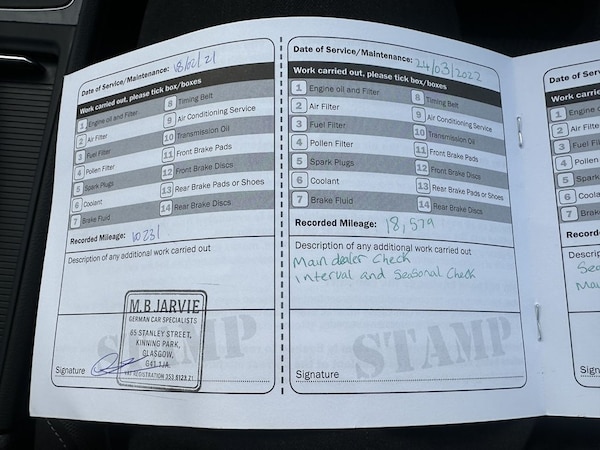 Date of Service/Maintenance: 18/02/21
Work carried out, please tick box/boxes
1 Engine oil and Filter
2 Air Filter
3 Fuel Filter
4 Pollen Filter
5 Spark Plugs
6 Coolant
7 Brake Fluid
8 Timing Belt
9 Air Conditioning Service
10 Transmission Oil
11 Front Brake Pads
12 Front Brake Discs
13 Rear Brake Pads or Shoes
14 Rear Brake Discs
Recorded Mileage: 10231
Description of any additional work carried out
STAMP
M.B JARVIE
GERMAN CAR SPECIALISTS
65 STANLEY STREET,
KINNING PARK,
GLASGOW,
G41 1JA.
VAT REGISTRATION 353 8123 21
Signature
Date of Service/Maintenance: 24/03/2022
Work carried out, please tick box/boxes
1 Engine oil and Filter
2 Air Filter
3 Fuel Filter
4 Pollen Filter
5 Spark Plugs
6 Coolant
7 Brake Fluid
8 Timing Belt
9 Air Conditioning Service
10 Transmission Oil
11 Front Brake Pads
12 Front Brake Discs
13 Rear Brake Pads or Shoes
14 Rear Brake Discs
Recorded Mileage: 18,579
Description of any additional work carried out
Main dealer Check
interval and Seasonal Check
STAMP
Signature
Date of Serv
Work carrie
1 Engine o
2 Air Filte
3 Fuel Fil
4 Pollen
5 Spark
6 Coola
7 Brake
Record
Descrip
Sea
Mai
Sign